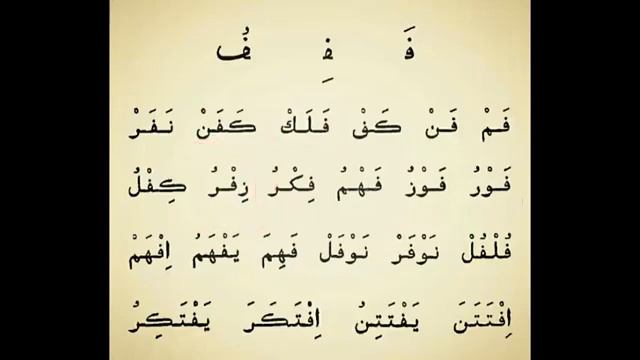 فَ فِ فُ
فَمْ فَنْ كَفْ فَلَكْ كَفَنْ نَفَرْ
فَوْرُ فَوْزُ فَهْمُ فِكْرُ زِفْرُ كِفْلُ
فُلْفُلْ نَوْفَرْ نَوْفَلْ فَهِمَ يَفْهَمُ اِفْهَمْ
اِفْتَتَنَ يَفْتَتِنُ اِفْتَكَرَ يَفْتَكِرُ